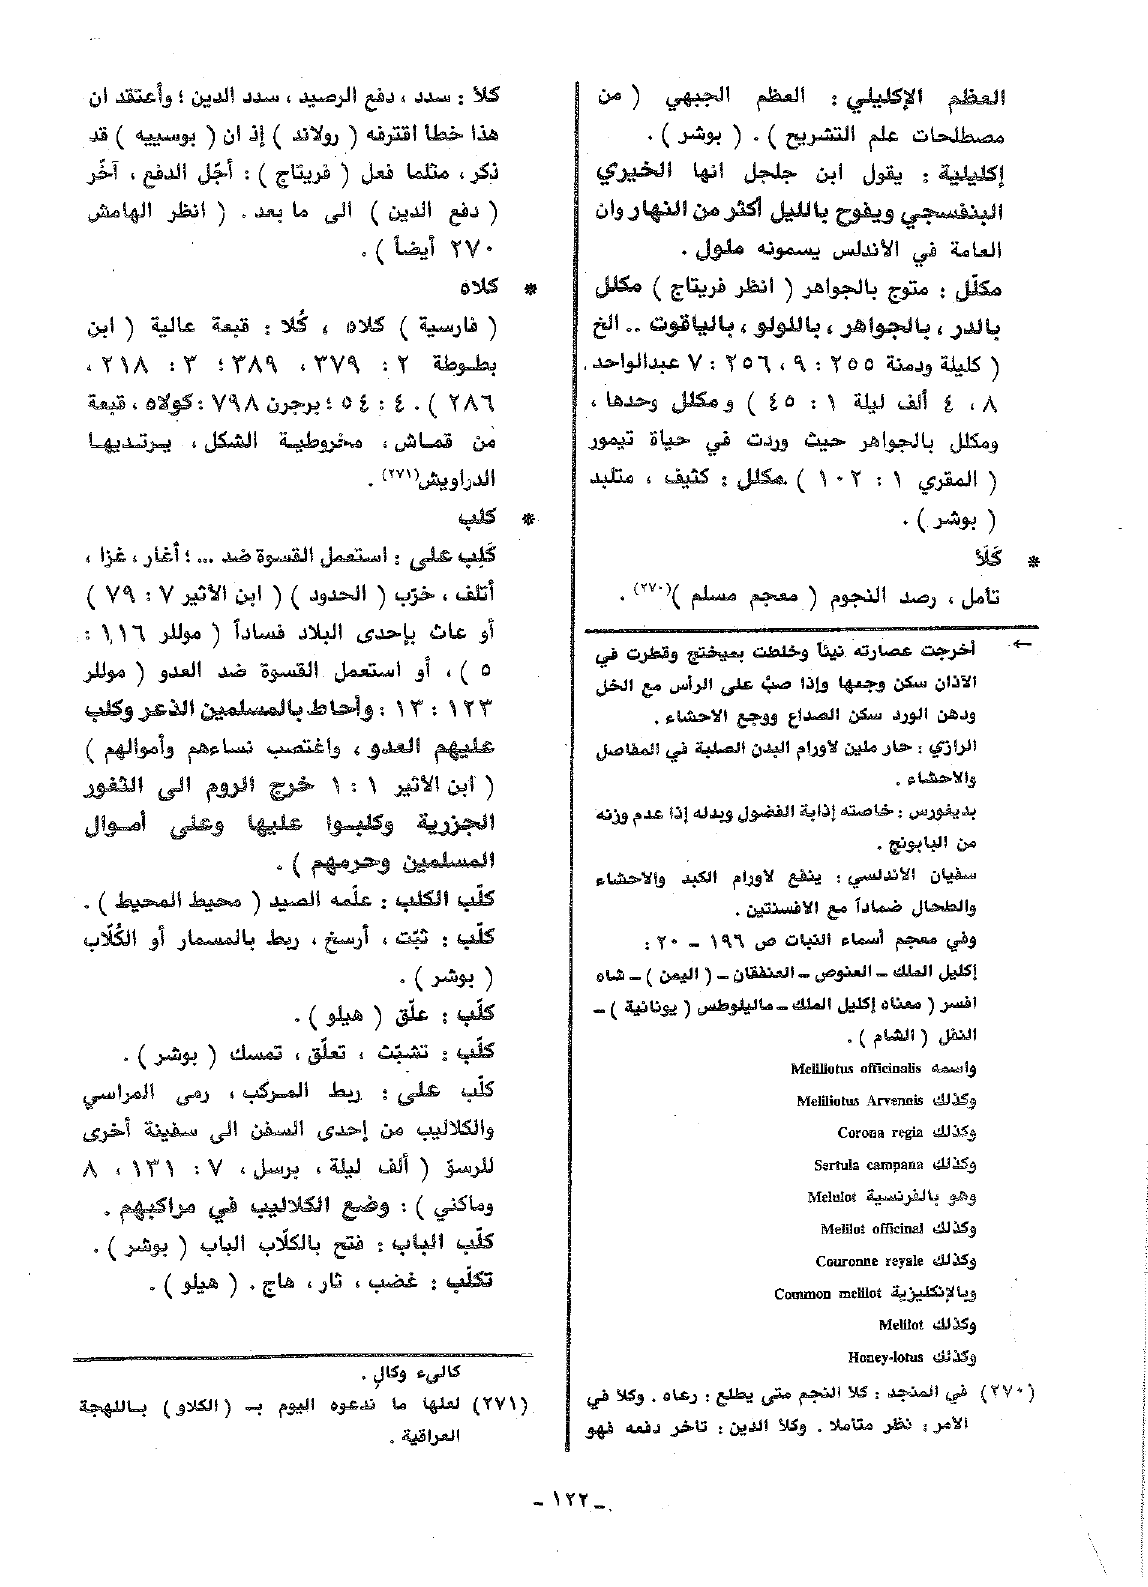 العظم الإكليلي : العظم الجبهي ( من
مصطلحات علم التشريح ) . ( بوشر ) .
إكليلية : يقول ابن جلجل انها الخيري
البنفسجي ويفوح بالليل أكثر من النهار وان
العامة في الأندلس يسمونه ملول .
مكلّل : متوج بالجواهر ( انظر فريتاج ) مكلل
بالدر ، بالجواهر ، باللولو ، بالياقوت .. الخ
( كليلة ودمنة ٢٥٥ : ٩ ، ٢٥٦ : ٧ عبدالواحد .
٨ ، ٤ ألف ليلة ١ : ٤٥ ) ومكلل وحدها ،
ومكلل بالجواهر حيث وردت في حياة تيمور
( المقري ١ : ١٠٢ ) مكلل : كثيف ، متلبد
( بوشر ) .
* كَلَأ
تأمل ، رصد النجوم ( معجم مسلم )(٢٧٠) .
← أخرجت عصارته نيئاً وخلطت بميختج وقطرت في
الآذان سكن وجعها وإذا صبّ على الرأس مع الخل
ودهن الورد سكن الصداع ووجع الاحشاء .
الرازي : حار ملين لاورام البدن الصلبة في المفاصل
والاحشاء .
بديغورس : خاصته إذابة الفضول وبدله إذا عدم وزنه
من البابونج .
سفيان الاندلسي : ينفع لاورام الكبد والاحشاء
والطحال ضماداً مع الافسنتين .
وفي معجم أسماء النبات ص ١٩٦ – ٢٠ :
إكليل الملك – العنوص – العنفقان – ( اليمن ) – شاه
افسر ( معناه إكليل الملك – ماليلوطس ( يونانية ) –
النفل ( الشام ) .
واسمه Meliliotus officinalis
وكذلك Meliliotus Arvennis
وكذلك Corona regia
وكذلك Sertula campana
وهو بالفرنسية Melulot
وكذلك Melilot officinal
وكذلك Couronne reyale
وبالإنكليزية Common melilot
وكذلك Melilot
وكذلك Honey-lotus
(٢٧٠) في المنجد : كلأ النجم متى يطلع : رعاه . وكلأ في
الأمر : نظر متأملا . وكلأ الدين : تأخر دفعه فهو
كلأ : سدد ، دفع الرصيد ، سدد الدين ؛ وأعتقد ان
هذا خطأ اقترفه ( رولاند ) إذ ان ( بوسييه ) قد
ذكر ، مثلما فعل ( فريتاج ) : أجّل الدفع ، آخّر
( دفع الدين ) الى ما بعد . ( انظر الهامش
٢٧٠ أيضاً ) .
* كلاه
( فارسية ) كلاه ، كُلا : قبعة عالية ( ابن
بطوطة ٢ : ٣٧٩ ، ٣٨٩ ؛ ٣ : ٢١٨ ،
٢٨٦ ) . ٤ : ٥٤ ؛ برجرن ٧٩٨ : كولاه ، قبعة
من قماش ، مخروطية الشكل ، يرتديها
الدراويش(٢٧١) .
* كلب
كَلِب على : استعمل القسوة ضد ... ؛ أغار ، غزا ،
أتلف ، خرّب ( الحدود ) ( ابن الأثير ٧ : ٧٩ )
أو عاث بإحدى البلاد فساداً ( موللر ١١٦ ، :
٥ ) ، أو استعمل القسوة ضد العدو ( موللر
١٢٣ : ١٣ : وأحاط بالمسلمين الذعر وكلب
عليهم العدو ، واغتصب نساءهم وأموالهم )
( ابن الأثير ١ : ١ خرج الروم الى الثغور
الجزرية وكلبوا عليها وعلى أموال
المسلمين وحرمهم ) .
كلّب الكلب : علّمه الصيد ( محيط المحيط ) .
كلّب : ثبّت ، أرسخ ، ربط بالمسمار أو الكُلّاب
( بوشر ) .
كلّب : علّق ( هيلو ) .
كلّب : تشبّث ، تعلّق ، تمسك ( بوشر ) .
كلّب على : ربط المركب ، رمى المراسي
والكلاليب من إحدى السفن الى سفينة أخرى
للرسوّ ( ألف ليلة ، برسل ، ٧ : ١٣١ ، ٨
وماكني ) : وضع الكلاليب في مراكبهم .
كلّب الباب : فتح بالكلّاب الباب ( بوشر ) .
تكلّب : غضب ، ثار ، هاج . ( هيلو ) .
كالىء وكالٍ .
(٢٧١) لعلها ما ندعوه اليوم بـ ( الكلاو ) باللهجة
العراقية .
ـ ١٢٢ ـ